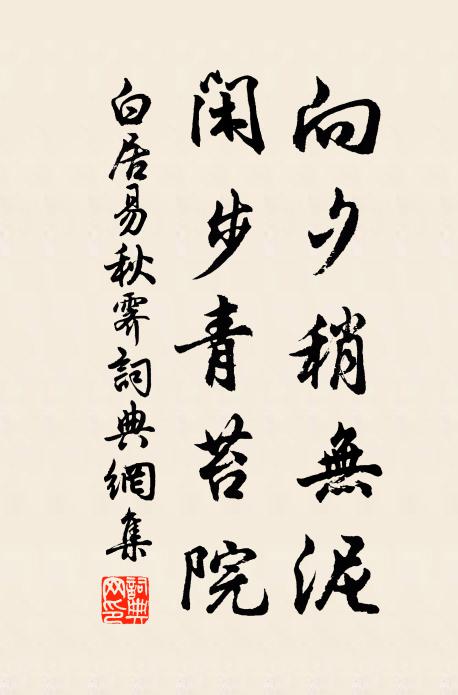 向夕稍無泥
閑步青苔院
白居易秋霽詞典網集
詞典網印